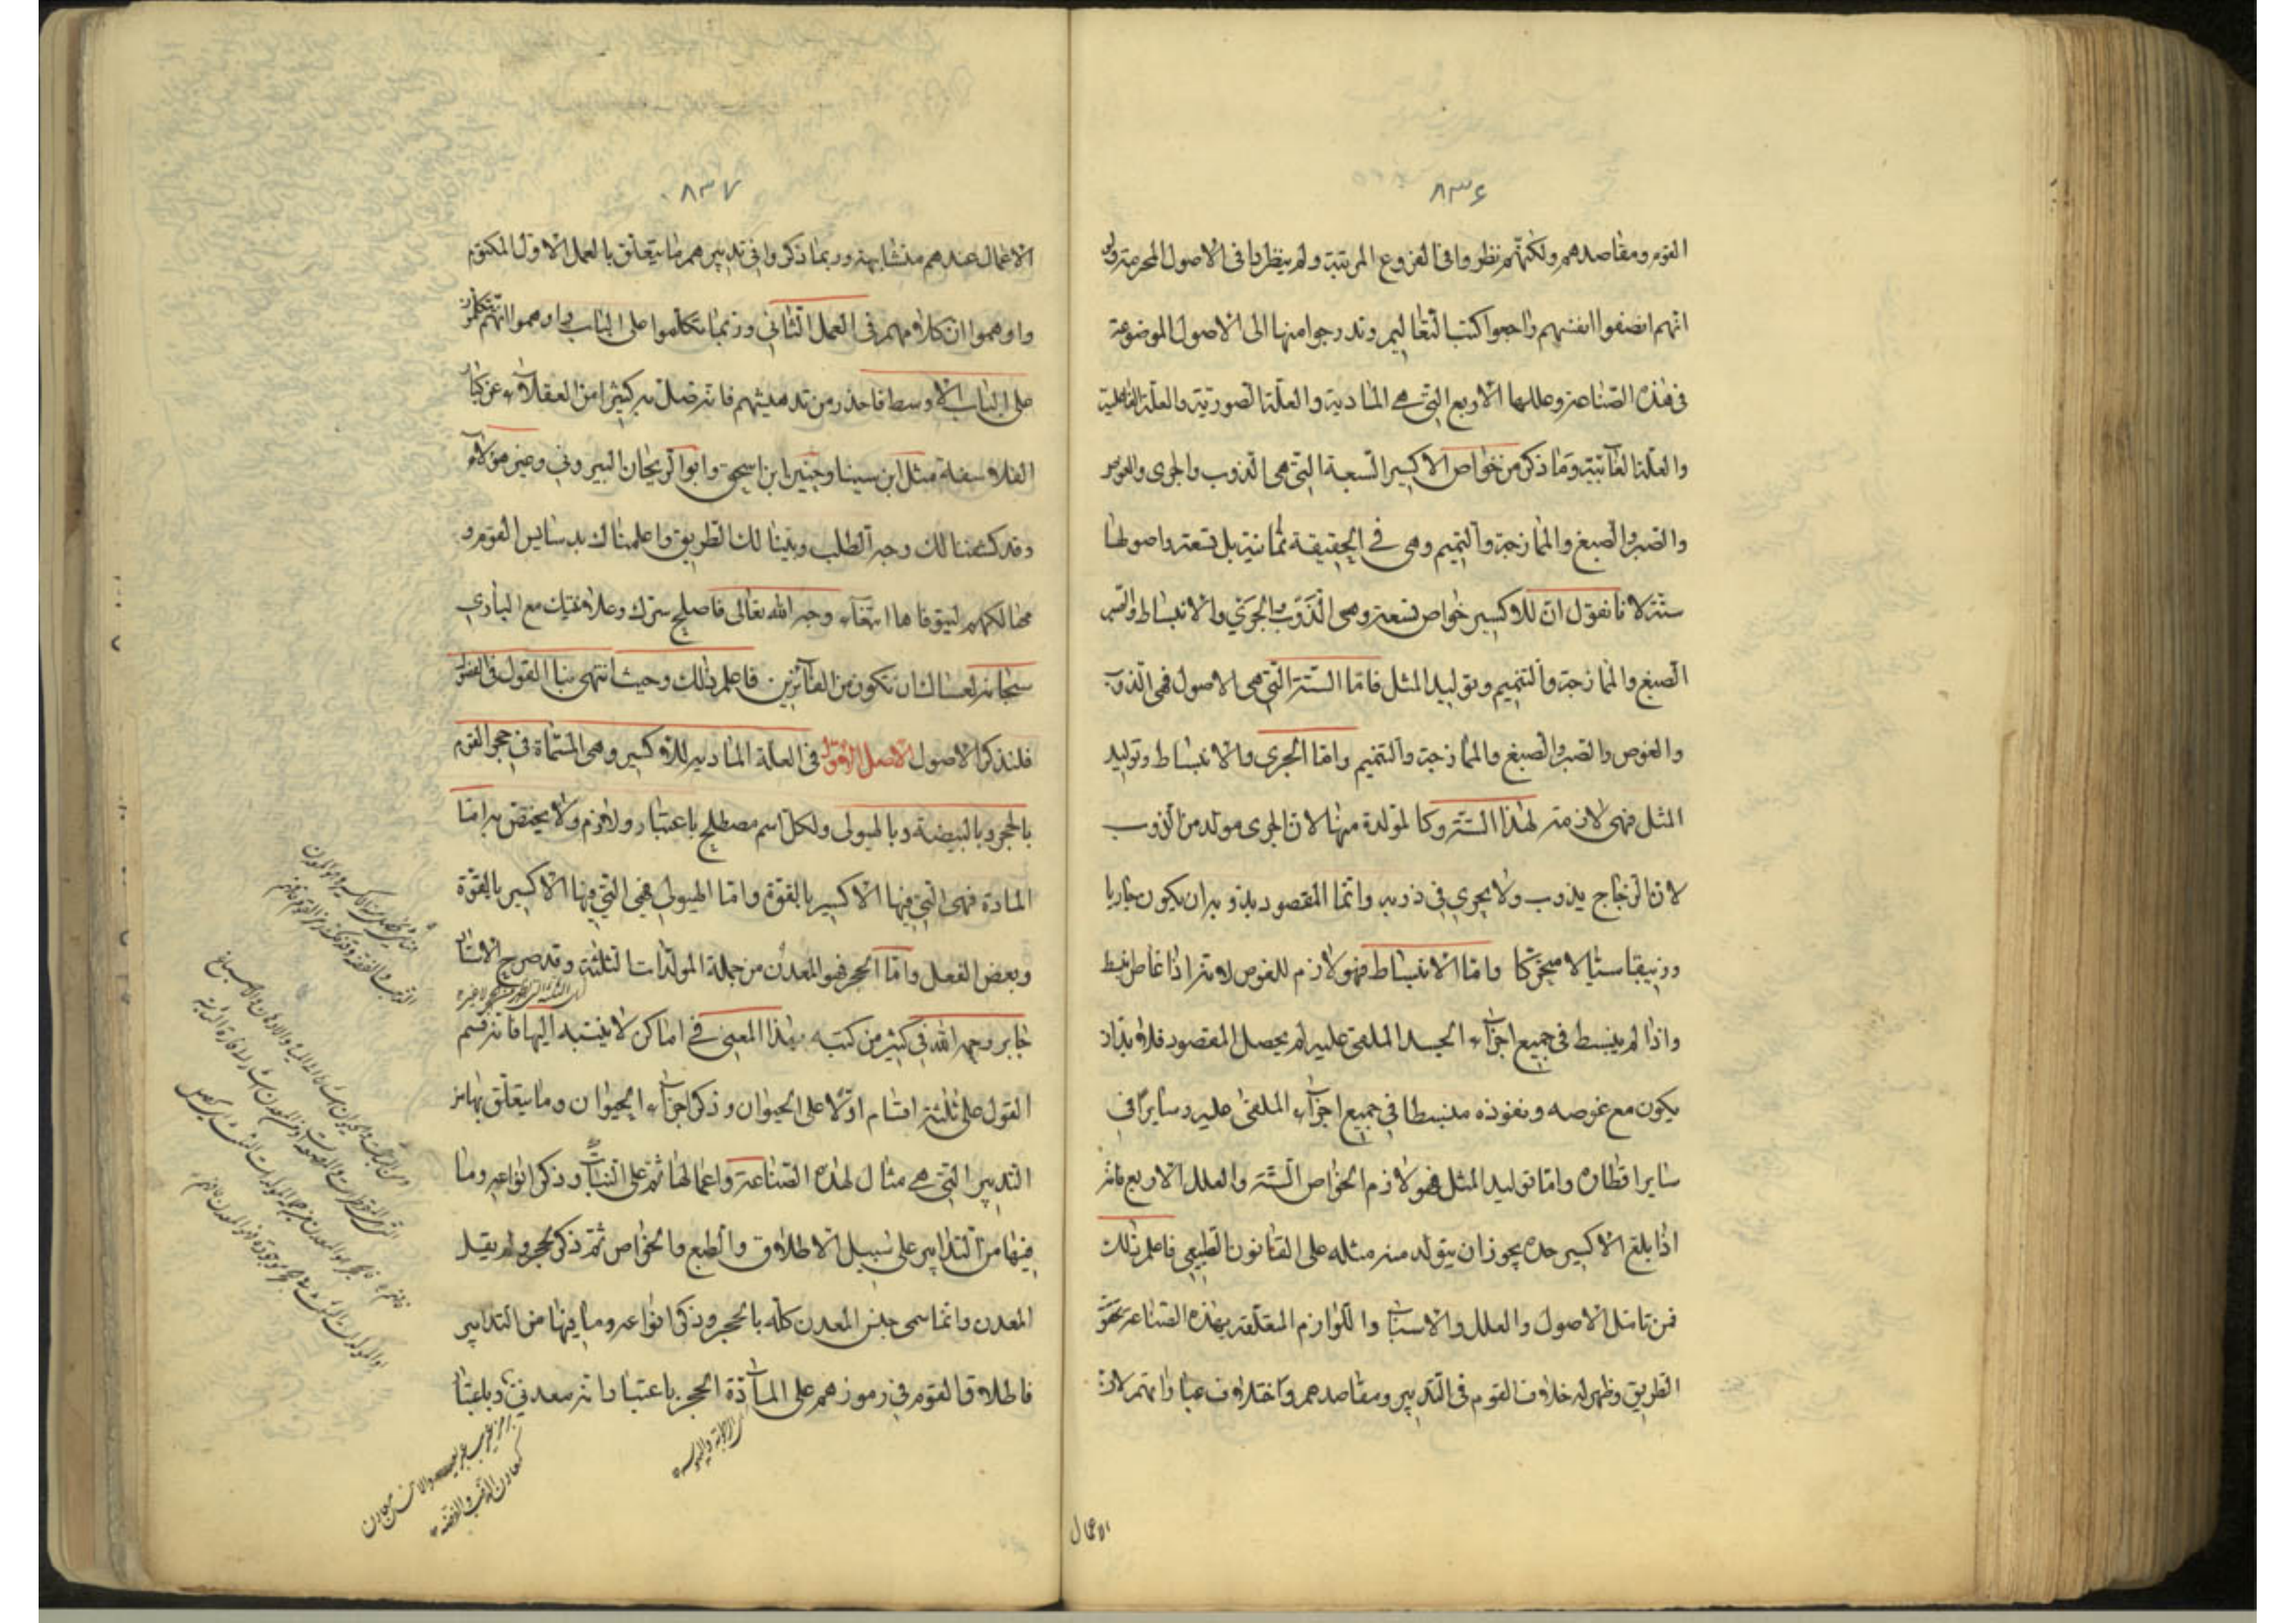 ٨٣٦
القوم ومقاصدهم ولكنهم نظروا في الفروع المرتبة ولم ينظروا في الاصول المحرمة ولو
انهم انصفوا انفسهم راجعوا كتب التعاليم وتدرجوا منها الى الاصول الموضوعة
في هذه الصناعة وعللها الاربع التي هي المادية والعلة الصورية والعلة الفاعلية
والعلة الغائية وما ذكر من خواص الاكسير السبعة التي هي الذوب والجرى والغوص
والصبر والصبغ والممازجة والتتميم وهى في الحقيقة ثمانية بل تسعة واصولها
ستة لانا نقول ان للاكسير خواص تسعة وهى الذوب والجرى والانبساط والصبر
الصبغ والممازجة والتتميم وتوليد المثل فاما الستة التي هى الاصول فهى الذوب
والغوص والصبر والصبغ والممازجة والتتميم واما الجرى والانبساط وتوليد
المثل فهى لازمة لهذا الستة وكالمولدة منها لان الجرى مولد من الذوب
لان الزجاج يذوب ولا يجري في ذوبه وانما المقصود بذوبه ان يكون جاريا
وزيبقا سيالا متحركا واما الانبساط فهو لازم للغوص لانه اذا غاص انبسط
واذا لم ينبسط في جميع اجزاء الجسد الملقى عليه لم يحصل المقصود فلا بد ان
يكون مع غوصه ونفوذه منبسطا في جميع اجزاء الملقى عليه وسايرا في
ساير اقطاره واما توليد المثل فهو لازم الخواص الستة والعلل الاربع فانه
اذا بلغ الاكسير حده يجوز ان يتولد منه مثله على القانون الطبيعي فاعلم ذلك
فمن تامل الاصول والعلل والاسباب واللوازم المتعلقة بهذه الصناعة تحقق
الطريق وظهر له خلاف القوم في التدبير ومقاصدهم واختلاف عباراتهم لان
الاعمال
٨٣٧
الاعمال عندهم متشابهة وربما ذكروا في تدبيرهم ما يتعلق بالعمل الاول المكتوم
واوهموا ان كلامهم في العمل الثاني وربما تكلموا على الباب واوهموا انهم تكلموا
على الباب الاوسط فاحذر من تدهيشهم فانه ضل به كثيرا من العقلاء عن كبار
الفلاسفة مثل ابن سينا وحنين ابن اسحق وابو الريحان البيروني وغير هؤلاء
وقد كشفنا لك وجه الطلب وبينا لك الطريق واعلمناك بدسايس القوم و
مهالكهم لتتوقاها ابتغاء وجه الله تعالى فاصلح سرك وعلانيتك مع الباري
سبحانه لعسالك ان تكون من الفائزين فاعلم ذلك وحيث انتهى بنا القول في الفروع
فلنذكر الاصول الاصل الاول في العلة المادية للاكسير وهى المسماة في حجر القوم
بالحجر وبالبيضة وبالهيولى ولكل اسم مصطلح باعتبار ولازم ولا يختص به اما
المادة فهى التي فيها الاكسير بالقوة واما الهيولى فهى التي فيها الاكسير بالقوة
وبعض الفعل واما الحجر فهو المعدن من جملة المولدات الثلثة وقد صرح الاستاد
جابر رحمه الله في كثير من كتبه بهذا المعنى في اماكن لا ينتبه اليها فانه قسم
القول على ثلثة اقسام اولا على الحيوان وذكر اجزاء الحيوان وما يتعلق بها من
التدبير التي هى مثال لهذه الصناعة واعمالها ثم على النبات وذكر انواعه وما
فيها من التدابير على سبيل الاطلاق والطبع والخواص ثم ذكر الحجر ولم يقل
المعدن وانما سمى جنس المعدن كله بالحجر وذكر انواعه وما فيها من التدابير
فاطلاق القوم في رموزهم على المادة الحجر باعتبار انه معدني وباعتبار